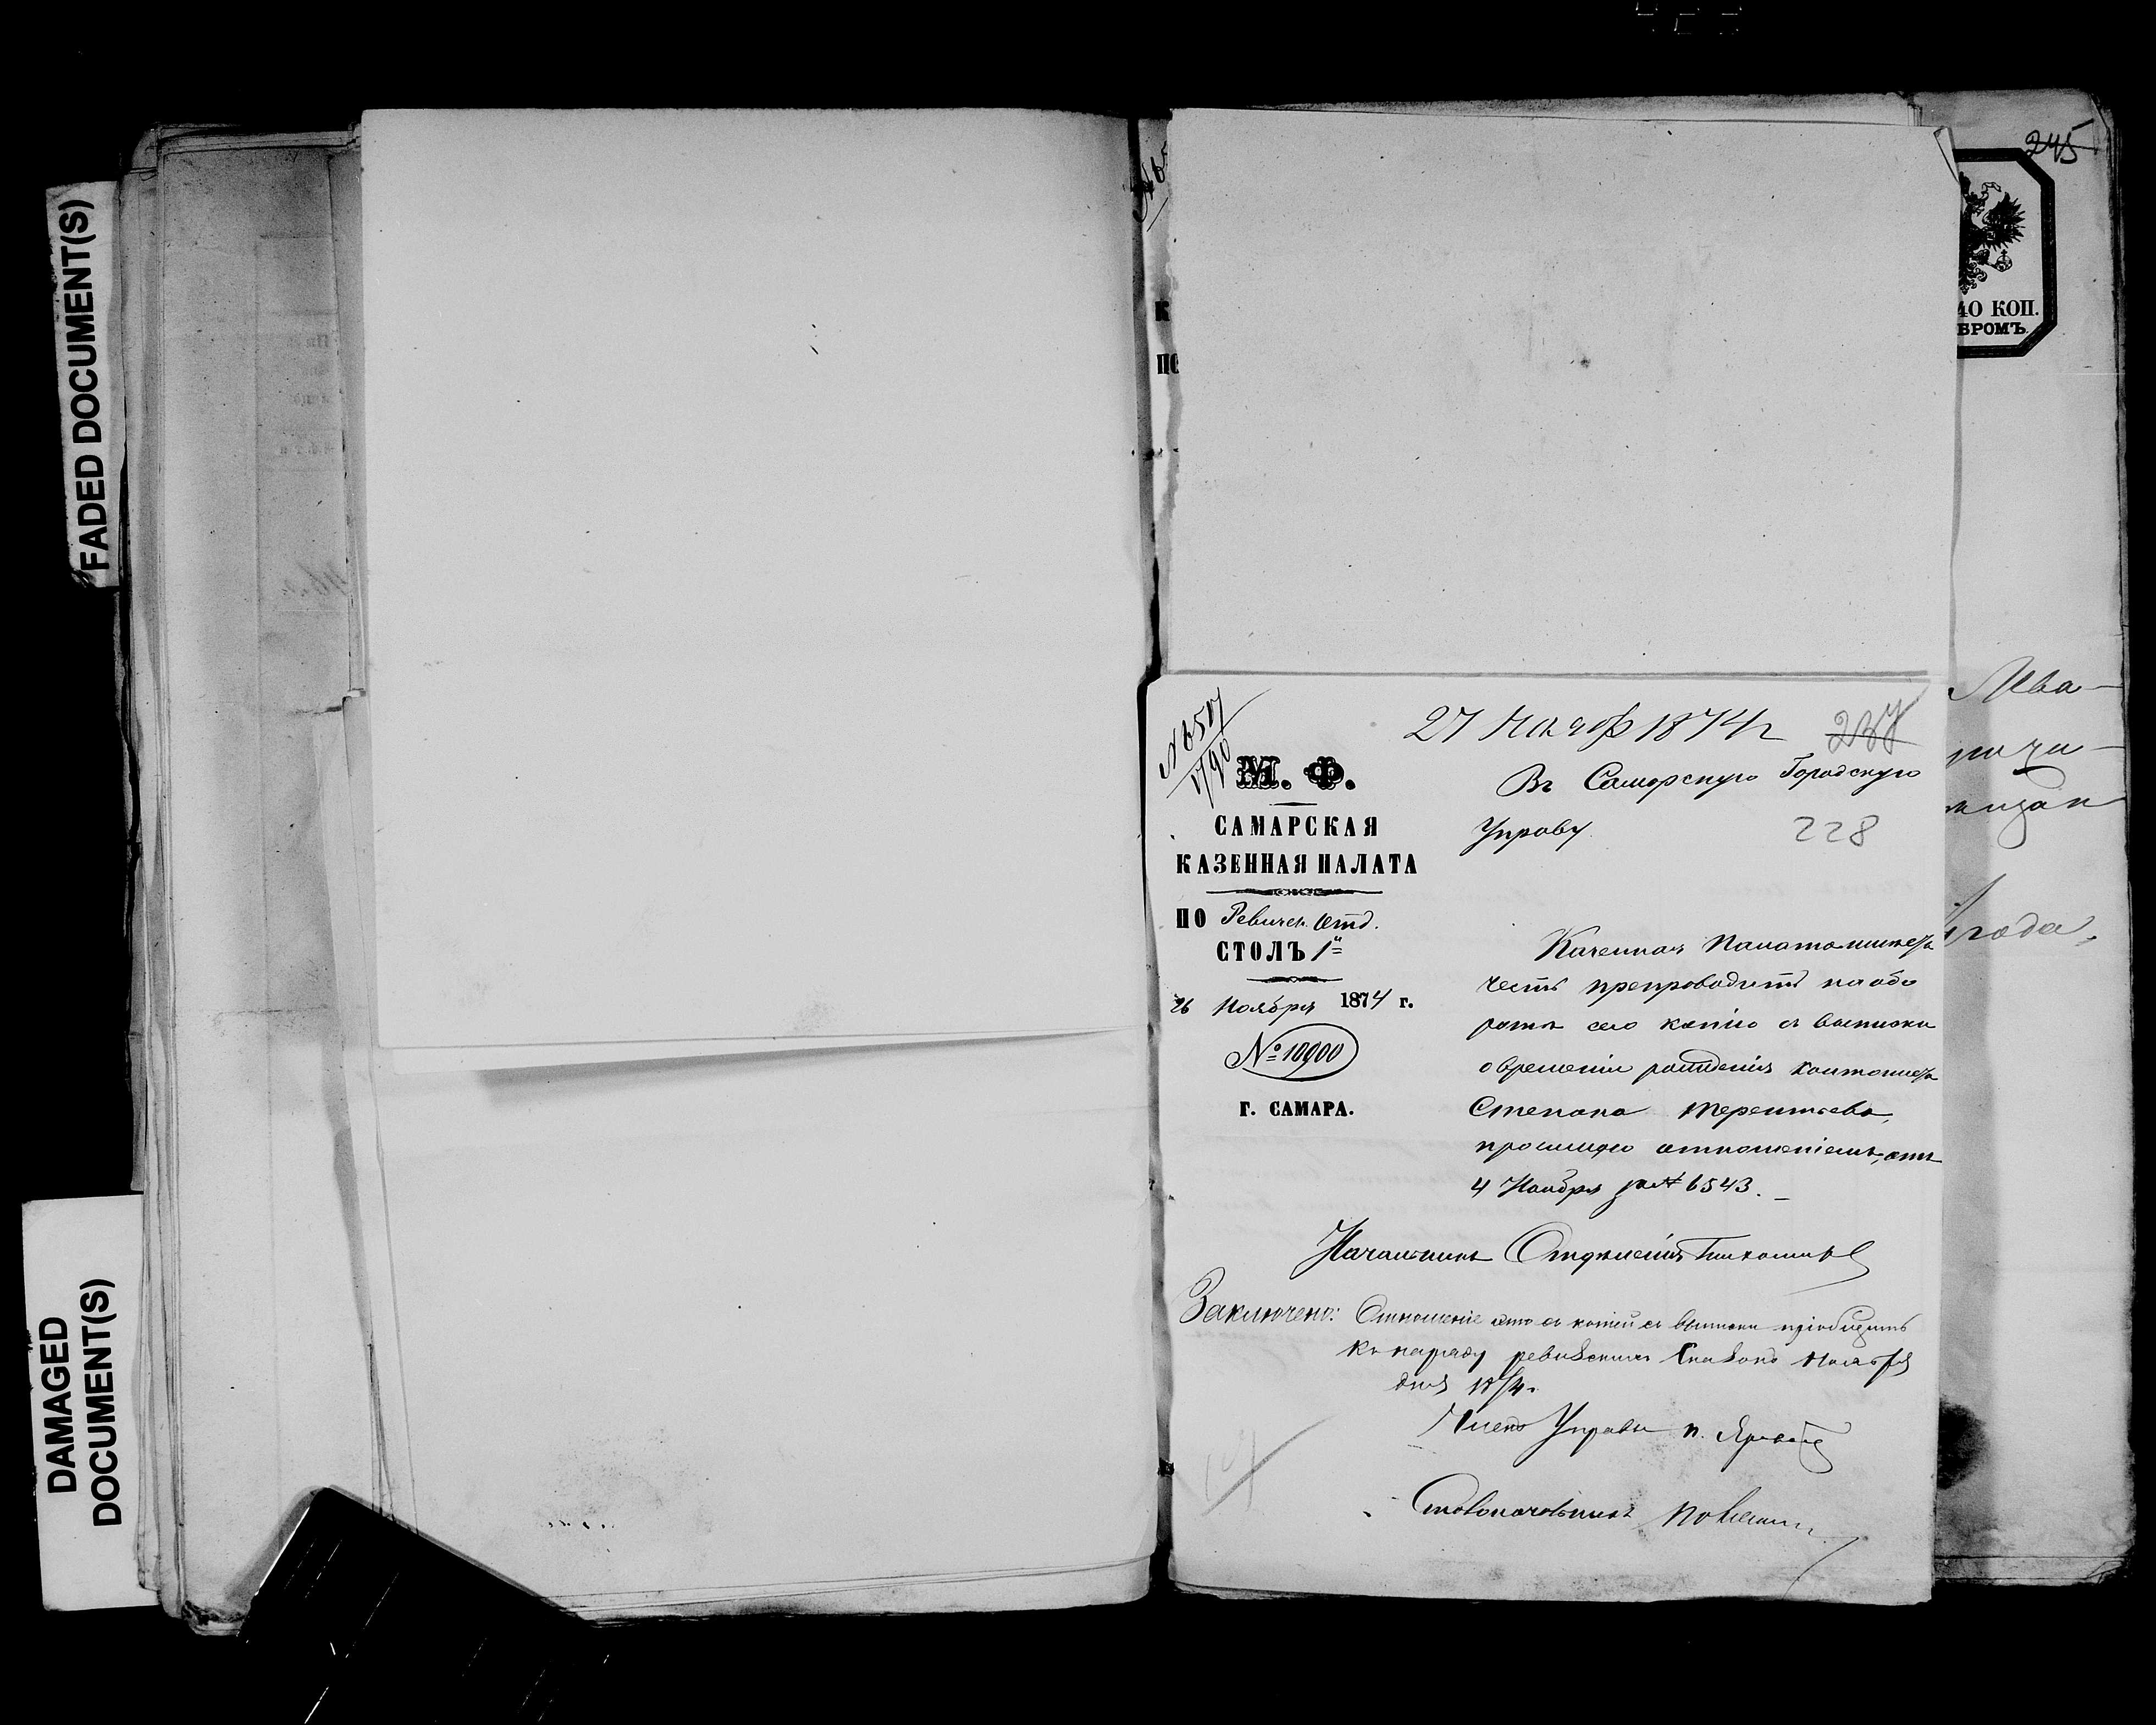 FADED DOCUMENT(S)
DAMAGED
DOCUMENT(S)
245
40 КОП.
БРОМЪ.
года,
27 Нояб 1874 г
237
М. Ф.
САМАРСКАЯ
КАЗЕННАЯ ПАЛАТА
ПО Ревизск. Отд.
СТОЛЪ 1й
26 Ноября 1874 г.
№ 10900
Г. САМАРА.
Въ Самарскую Городскую
Управу
228
Казенная Палата имѣетъ
честь препроводить на обо
ротѣ сего копію съ выписки
о времени рожденія кантониста
Степана Терентьева,
просимую отношеніемъ, отъ
4 Ноября за № 6543.
Начальникъ Отдѣленія Тихомир
Заключено: Отношеніе это съ копіей съ выписки пріобщить
къ наряду ревизскихъ сказокъ Ноября
дня 1874.
Членъ Управы п.
Столоначальникъ